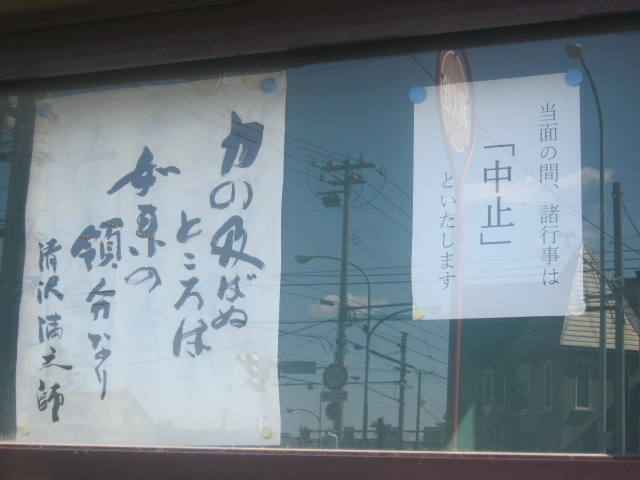 当面の間、諸行事は
「中止」
といたします
力の及ばぬ
ところは
如来の
領分なり
清沢満之師